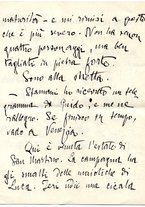 naturalisti - e mi rimisi a questo
che è più severo. Non ha variar
quattro personaggi, ma ben
tagliati in pietra forte.
Sono alla stretta.
- Stamani ho ricevuto un tele
gramma di Guido, e me ne
rallegro. Se finisco in tempo,
vado a Venezia.
Qui è venuta l'estate di
San Martino. La campagna ha
gli smalti delle maioliche di
Luca. Ieri udii una cicala